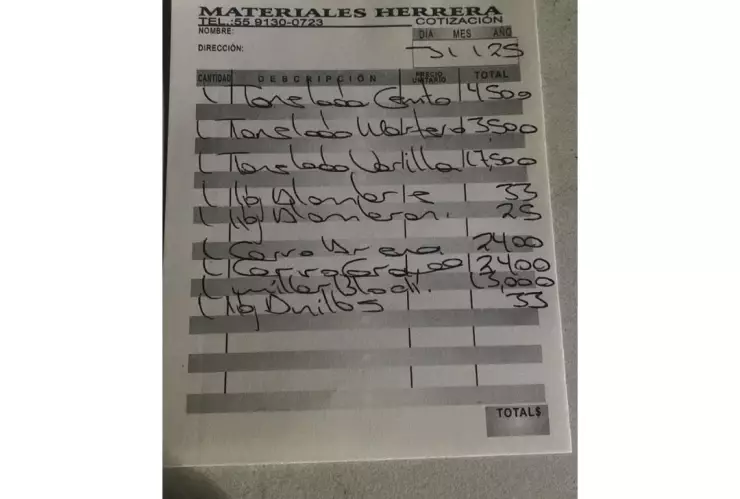 MATERIALES HERRERA
TEL.:55 9130-0723 COTIZACIÓN
NOMBRE: DIA MES AÑO
DIRECCIÓN: 31 1 25
CANTIDAD DESCRIPCIÓN PRECIO UNITARIO TOTAL
1 Tonelada 4500
1 Tonelada Mortero 3500
1 Tonelada Varilla 17,500
1 Kg Alambre 33
1 Kg Alambron. 25
1 Carro Arena 2400
1 Carro 2400
1 millar 13,000
1 Kg Anillos 33
TOTAL$